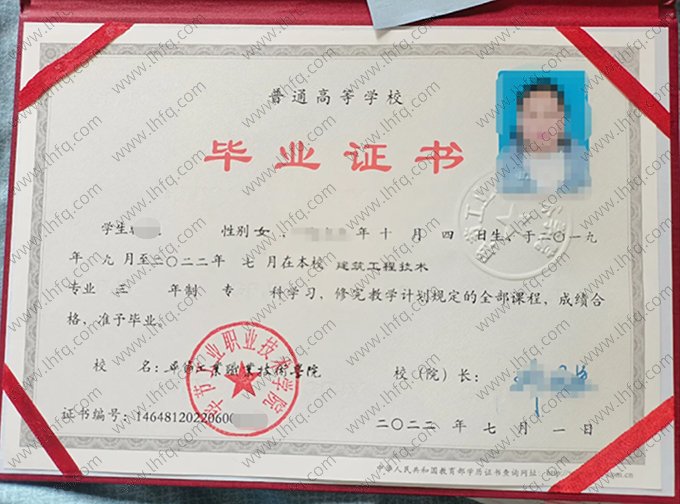 普通高等学校
毕业证书
学生 性别 女, 年 十 月 四 日生, 于二〇一九
年 九 月至二〇二二年 七 月在本校 建筑工程技术
专业 三 年制 专 科学习, 修完教学计划规定的全部课程, 成绩合
格, 准予毕业。
校 名: 毕节工业职业技术学院
校(院)长:
毕节工业职业技术学院
证书编号: 14648120220600
二〇二二 年 七 月 一 日
中华人民共和国教育部学历证书查询网址: http://
www.lhfq.com